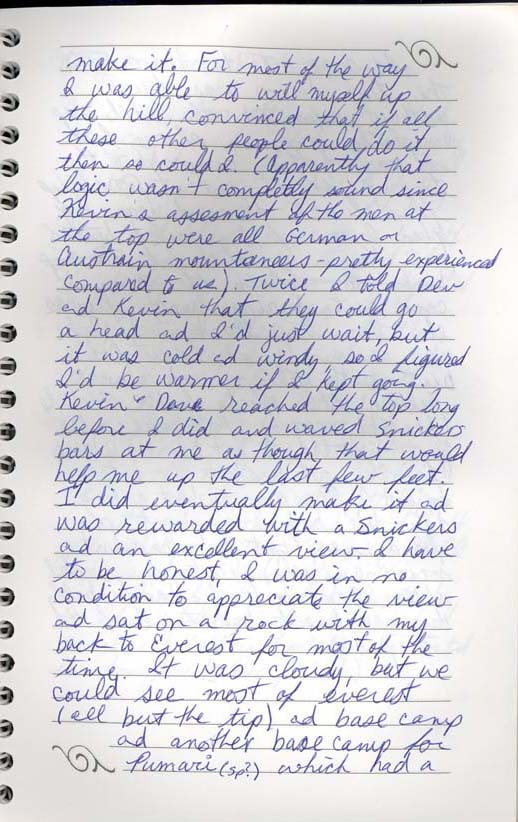 make it. For most of the way
I was able to will myself up
the hill, convinced that if all
these other people could do it
then so could I. (Apparently that
logic wasn't completly sound since
Kevin's assesment of the men at
the top were all German or
Austrain mountaneers - pretty experienced
compared to us). Twice I told Dev
ad Kevin that they could go
a head ad I'd just wait, but
it was cold ad windy so I figured
I'd be warmer if I kept going.
Kevin & Dave reached the top long
before I did and waved Snickers
bars at me as though that would
help me up the last few feet.
I did eventually make it ad
was rewarded with a Snickers
ad an excellent view. I have
to be honest, I was in no
condition to appreciate the view
ad sat on a rock with my
back to Everest for most of the
time. It was cloudy, but we
could see most of everest
(all but the tip) ad base camp
ad another base camp for
Pumari (sp?) which had a